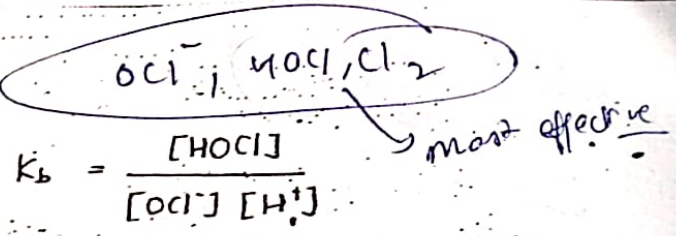 OCl⁻, HOCl, Cl₂
most effective
K_b = [HOCl] / [OCl⁻] [H⁺]